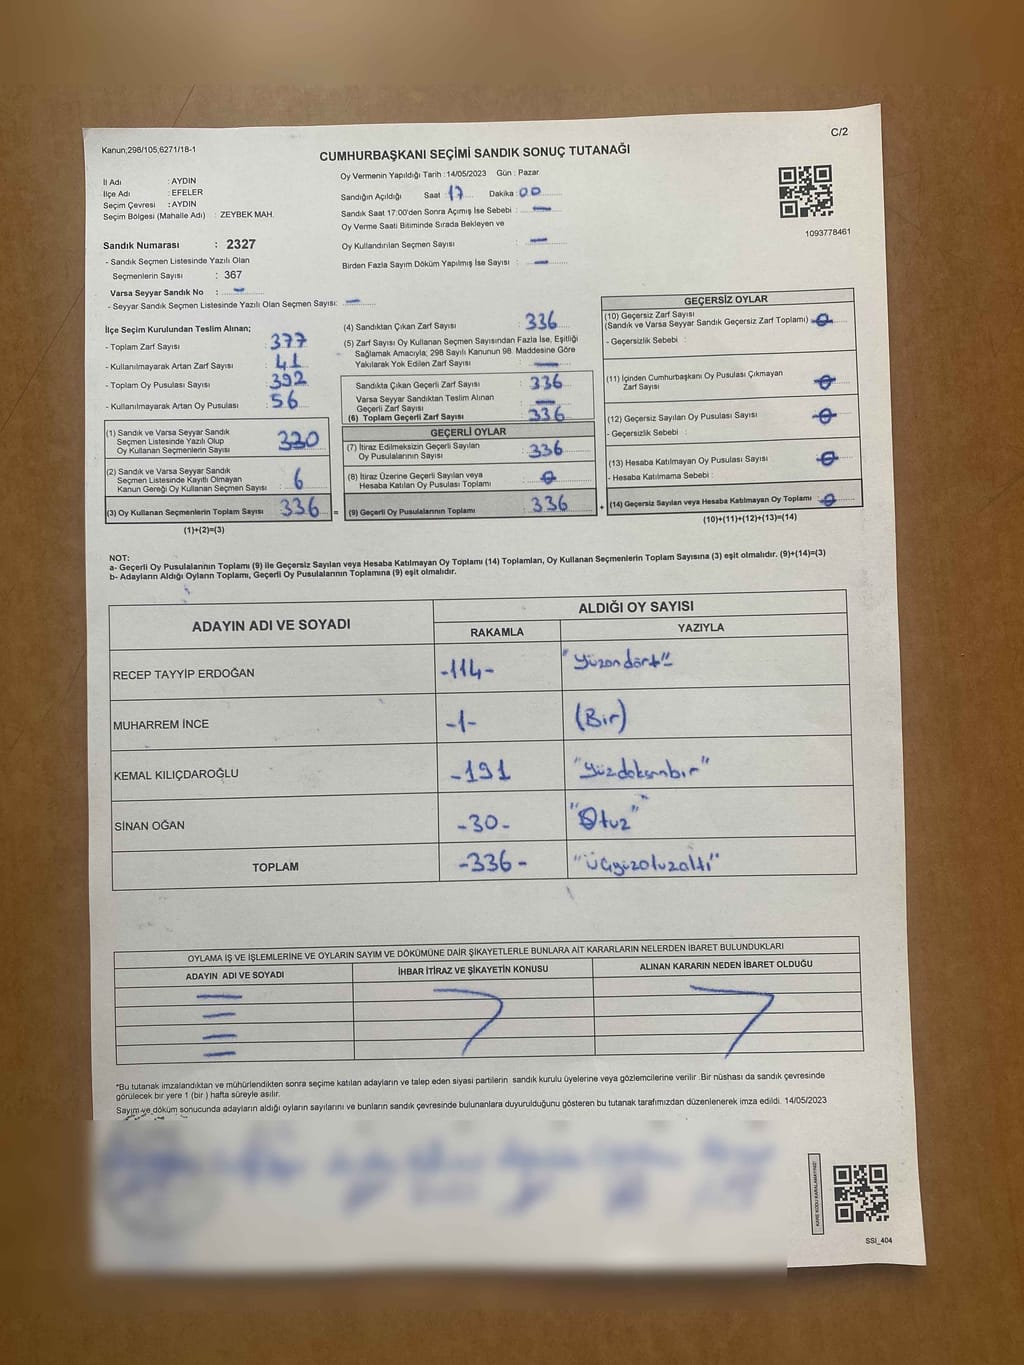 C/2
Kanun;298/105,6271/18-1
CUMHURBAŞKANI SEÇİMİ SANDIK SONUÇ TUTANAĞI
İl Adı : AYDIN
İlçe Adı : EFELER
Seçim Çevresi : AYDIN
Seçim Bölgesi (Mahalle Adı) : ZEYBEK MAH.
Sandık Numarası : 2327
- Sandık Seçmen Listesinde Yazılı Olan
Seçmenlerin Sayısı : 367
Varsa Seyyar Sandık No : –
- Seyyar Sandık Seçmen Listesinde Yazılı Olan Seçmen Sayısı: –
Oy Vermenin Yapıldığı Tarih : 14/05/2023 Gün : Pazar
Sandığın Açıldığı Saat : 17 Dakika : 00
Sandık Saat 17:00'den Sonra Açımış İse Sebebi : –
Oy Verme Saati Bitiminde Sırada Bekleyen ve
Oy Kullandırılan Seçmen Sayısı : –
Birden Fazla Sayım Döküm Yapılmış İse Sayısı : –
1093778461
İlçe Seçim Kurulundan Teslim Alınan;
- Toplam Zarf Sayısı : 377
- Kullanılmayarak Artan Zarf Sayısı : 41
- Toplam Oy Pusulası Sayısı : 392
- Kullanılmayarak Artan Oy Pusulası : 56
(1) Sandık ve Varsa Seyyar Sandık
Seçmen Listesinde Yazılı Olup
Oy Kullanan Seçmenlerin Sayısı 330
(2) Sandık ve Varsa Seyyar Sandık
Seçmen Listesinde Kayıtlı Olmayan
Kanun Gereği Oy Kullanan Seçmen Sayısı : 6
(3) Oy Kullanan Seçmenlerin Toplam Sayısı 336 =
(1)+(2)=(3)
(4) Sandıktan Çıkan Zarf Sayısı : 336
(5) Zarf Sayısı Oy Kullanan Seçmen Sayısından Fazla İse, Eşitliği
Sağlamak Amacıyla; 298 Sayılı Kanunun 98. Maddesine Göre
Yakılarak Yok Edilen Zarf Sayısı : –
Sandıkta Çıkan Geçerli Zarf Sayısı : 336
Varsa Seyyar Sandıktan Teslim Alınan
Geçerli Zarf Sayısı : –
(6) Toplam Geçerli Zarf Sayısı : 336
GEÇERLİ OYLAR
(7) İtiraz Edilmeksizin Geçerli Sayılan
Oy Pusulalarının Sayısı : 336
(8) İtiraz Üzerine Geçerli Sayılan veya
Hesaba Katılan Oy Pusulası Toplamı : 0
(9) Geçerli Oy Pusulalarının Toplamı : 336 +
GEÇERSİZ OYLAR
(10) Geçersiz Zarf Sayısı
(Sandık ve Varsa Seyyar Sandık Geçersiz Zarf Toplamı) : 0
- Geçersizlik Sebebi :
(11) İçinden Cumhurbaşkanı Oy Pusulası Çıkmayan
Zarf Sayısı : 0
(12) Geçersiz Sayılan Oy Pusulası Sayısı : 0
- Geçersizlik Sebebi :
(13) Hesaba Katılmayan Oy Pusulası Sayısı : 0
- Hesaba Katılmama Sebebi :
(14) Geçersiz Sayılan veya Hesaba Katılmayan Oy Toplamı : 0
(10)+(11)+(12)+(13)=(14)
NOT:
a- Geçerli Oy Pusulalarının Toplamı (9) ile Geçersiz Sayılan veya Hesaba Katılmayan Oy Toplamı (14) Toplamları, Oy Kullanan Seçmenlerin Toplam Sayısına (3) eşit olmalıdır. (9)+(14)=(3)
b- Adayların Aldığı Oyların Toplamı, Geçerli Oy Pusulalarının Toplamına (9) eşit olmalıdır.
ADAYIN ADI VE SOYADI ALDIĞI OY SAYISI
RAKAMLA YAZIYLA
RECEP TAYYİP ERDOĞAN -114- "Yüzondört"
MUHARREM İNCE -1- (Bir)
KEMAL KILIÇDAROĞLU -191 "Yüzdoksanbir"
SİNAN OĞAN -30- "Otuz"
TOPLAM -336- "Üçyüzotuzaltı"
OYLAMA İŞ VE İŞLEMLERİNE VE OYLARIN SAYIM VE DÖKÜMÜNE DAİR ŞİKAYETLERLE BUNLARA AİT KARARLARIN NELERDEN İBARET BULUNDUKLARI
ADAYIN ADI VE SOYADI İHBAR İTİRAZ VE ŞİKAYETİN KONUSU ALINAN KARARIN NEDEN İBARET OLDUĞU
*Bu tutanak imzalandıktan ve mühürlendikten sonra seçime katılan adayların ve talep eden siyasi partilerin sandık kurulu üyelerine veya gözlemcilerine verilir .Bir nüshası da sandık çevresinde
görülecek bir yere 1 (bir ) hafta süreyle asılır.
Sayım ve döküm sonucunda adayların aldığı oyların sayılarını ve bunların sandık çevresinde bulunanlara duyurulduğunu gösteren bu tutanak tarafımızdan düzenlenerek imza edildi. 14/05/2023
KARE KODU KARALAMAYINIZ!
SSI_404